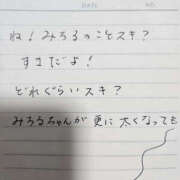 DATE NO.
ね！みちるのことスキ？
すきだよ！
どれぐらいスキ？
みちるちゃんが更に太くなっても